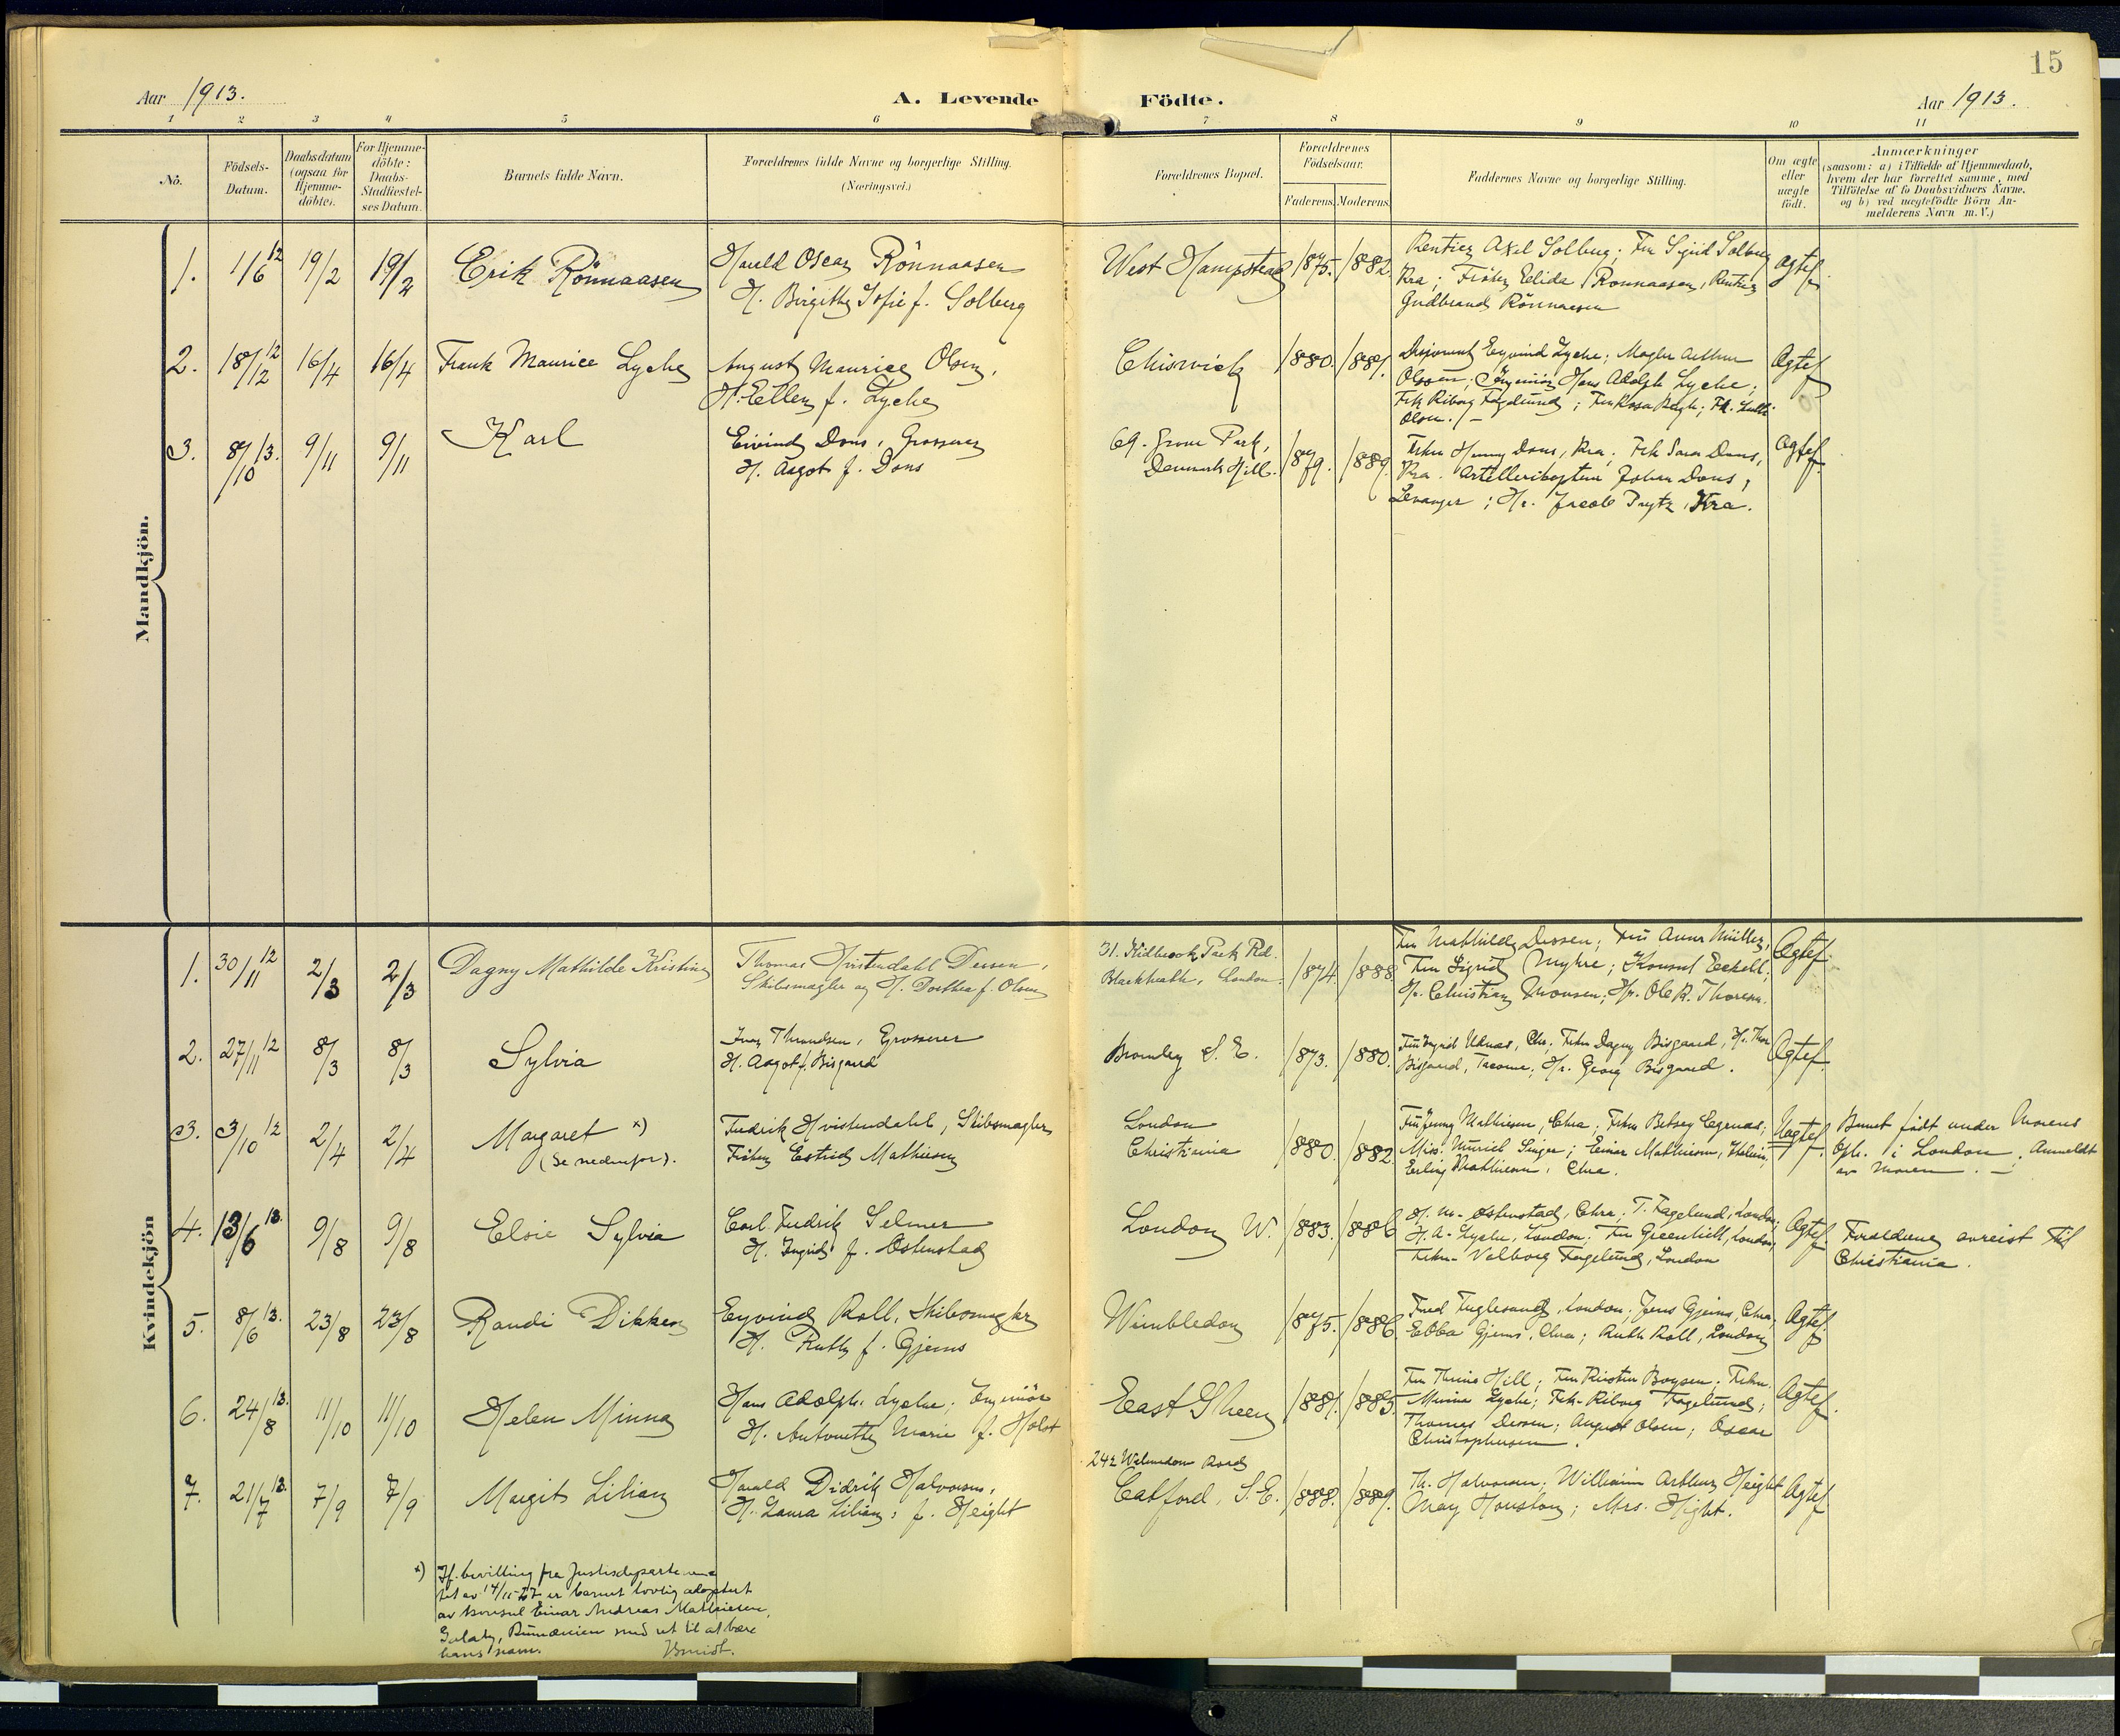 15
Aar 1913.
A. Levende Födte.
Aar 1913.
1 2 3 4 5 6 7 8 9 10 11
No.
Födsels-
Datum.
Daabsdatum
(ogsaa for
Hjemme-
döbte).
For Hjemme-
döbte:
Daabs-
Stadfæstel-
ses Datum.
Barnets fulde Navn.
Forældrenes fulde Navne og borgerlige Stilling.
(Næringsvei.)
Forældrenes Bopæl.
Forældrenes
Födselsaar.
Faderens. Moderens.
Faddernes Navne og borgerlige Stilling.
Om ægte
eller
uægte
födt.
Anmærkninger
(saasom: a) i Tilfælde af Hjemmedaab,
hvem der har forrettet samme, med
Tilföielse af to Daabsvidners Navne.
og b) ved uægtefödte Börn An-
melderens Navn m. V.)
Mandkjön.
1. 11/6 12 19/2 19/2 Erik Rönnaasen
Harald Oscar Rönnaasen
H. Birgitte Sofie f. Solberg
West Hampstead 1875. 1882.
Rentier Axel Solberg; Fru Sigrid Solberg
Kra; Fröken Elida Rönnaasen, Rentier
Gudbrand Rönnaasen
Ægtef.
2. 18/12 12 16/4 16/4 Frank Maurice Lyche
August Maurice Olsen,
H. Ellen f. Lyche
Chiswick 1880. 1889.
Eyvind Lyche; Megler Arthur
Olssen; Ingeniör Hans Adolph Lyche;
Frk Riborg Fagelund; Fru Rosa
Olsen./-
Ægtef
3. 8/10 13. 9/11 9/11 Karl
Eivind Dons, Grosserer
H. Aagot f. Dons
69. Grove Park,
Denmark Hill. 1879. 1889.
Frkn Dons, Kra; Frk Sara Dons,
Kra. Artillerikaptein Johan Dons,
Levanger; Hr. Jacob Prytz, Kra.
Ægtef.
Kvindekjön
1. 30/11 12 2/3 2/3 Dagny Mathilde Kristine
Thomas Hvistendahl Dessen,
Skibsmægler og H. Dorthea f. Olsen
31. Kidbrook Park Rd.
Blackheath, London. 1874. 1888
Fru Mathilde Dessen; Fru Anna Müller,
Fru Sigrid Myhre; Konsul Eckell;
Hr. Christian Monsen; Hr. Ole R. Thoresen.
Ægtef.
2. 27/11 12 8/3 8/3 Sylvia
Throndsen, Grosserer
H. Aagot f. Bisgaard
Bromley S. E. 1873. 1880.
Fru Ingrid Chr. Frkn Dagny Bisgaard, Hr. Thor
Bisgaard, Tacoma; Hr. Georg Bisgaard.
Ægtef.
3. 3/10 12 2/4 2/4 Margaret x)
(Se nedenfor).
Fredrik Hvistendahl, Skibsmægler
Fröken Estrid Mathiesen
London
Christiania 1880. 1882
Fru Jenny Mathiesen, Chra; Frkn Betsey
Miss. Muriel Singer; Einar Mathiesen,
Erling Mathiesen, Chra.
Uægtef.
Barnet födt under Morens
Oph. i London. Anmeldt
av moren. —
4. 13/6 13. 9/8 9/8 Elsie Sylvia
Carl Fredrik Selmer
H. Ingrid f. Östenstad
London W. 1883. 1886
H. M. Östenstad, Chra; T. Fagelund, London;
H. A. Lyche, London; Fru Greenhill, London,
Frkn. Valborg Fagelund, London
Ægtef.
Forældrene avreist til
Christiania.
5. 8/6 13. 23/8 23/8 Randi Dikken
Eyvind Roll, Skibsmægler
H. Ruth f. Gjems
Wimbledon 1875. 1886
Fred Fuglesang, London; Jens Gjems, Chra;
Ebba Gjems, Chra; Ruth Roll, London
Ægtef.
6. 24/8 13. 11/10 11/10 Helen Minna
Hans Adolph. Lyche; Ingeniör
H. Antonette Marie f. Holst
East Sheen 1881. 1885.
Fru Hill; Fru Kirsten Boysen; Frkn.
Minna Lyche; Frk. Riborg Fagelund;
Thomas Dessen; August Olsen; Oscar
Christophersen.
Ægtef.
7. 21/7 13. 7/9 7/9 Margit Lilian
Harald Didrik Halvorsen,
H. Laura Lilian, f. Height
Road
Catford, S.E. 1888. 1889.
Th. Halvorsen; William Arthur Height
May Houston; Mrs. Hight.
Ægtef
x) If. bevilling fra Justisdepartemen-
tet av 14/11-27 er barnet lovlig adoptert
av konsul Einar Andreas Mathiesen,
Galatz, Rumænien med ret til at bære
hans navn.